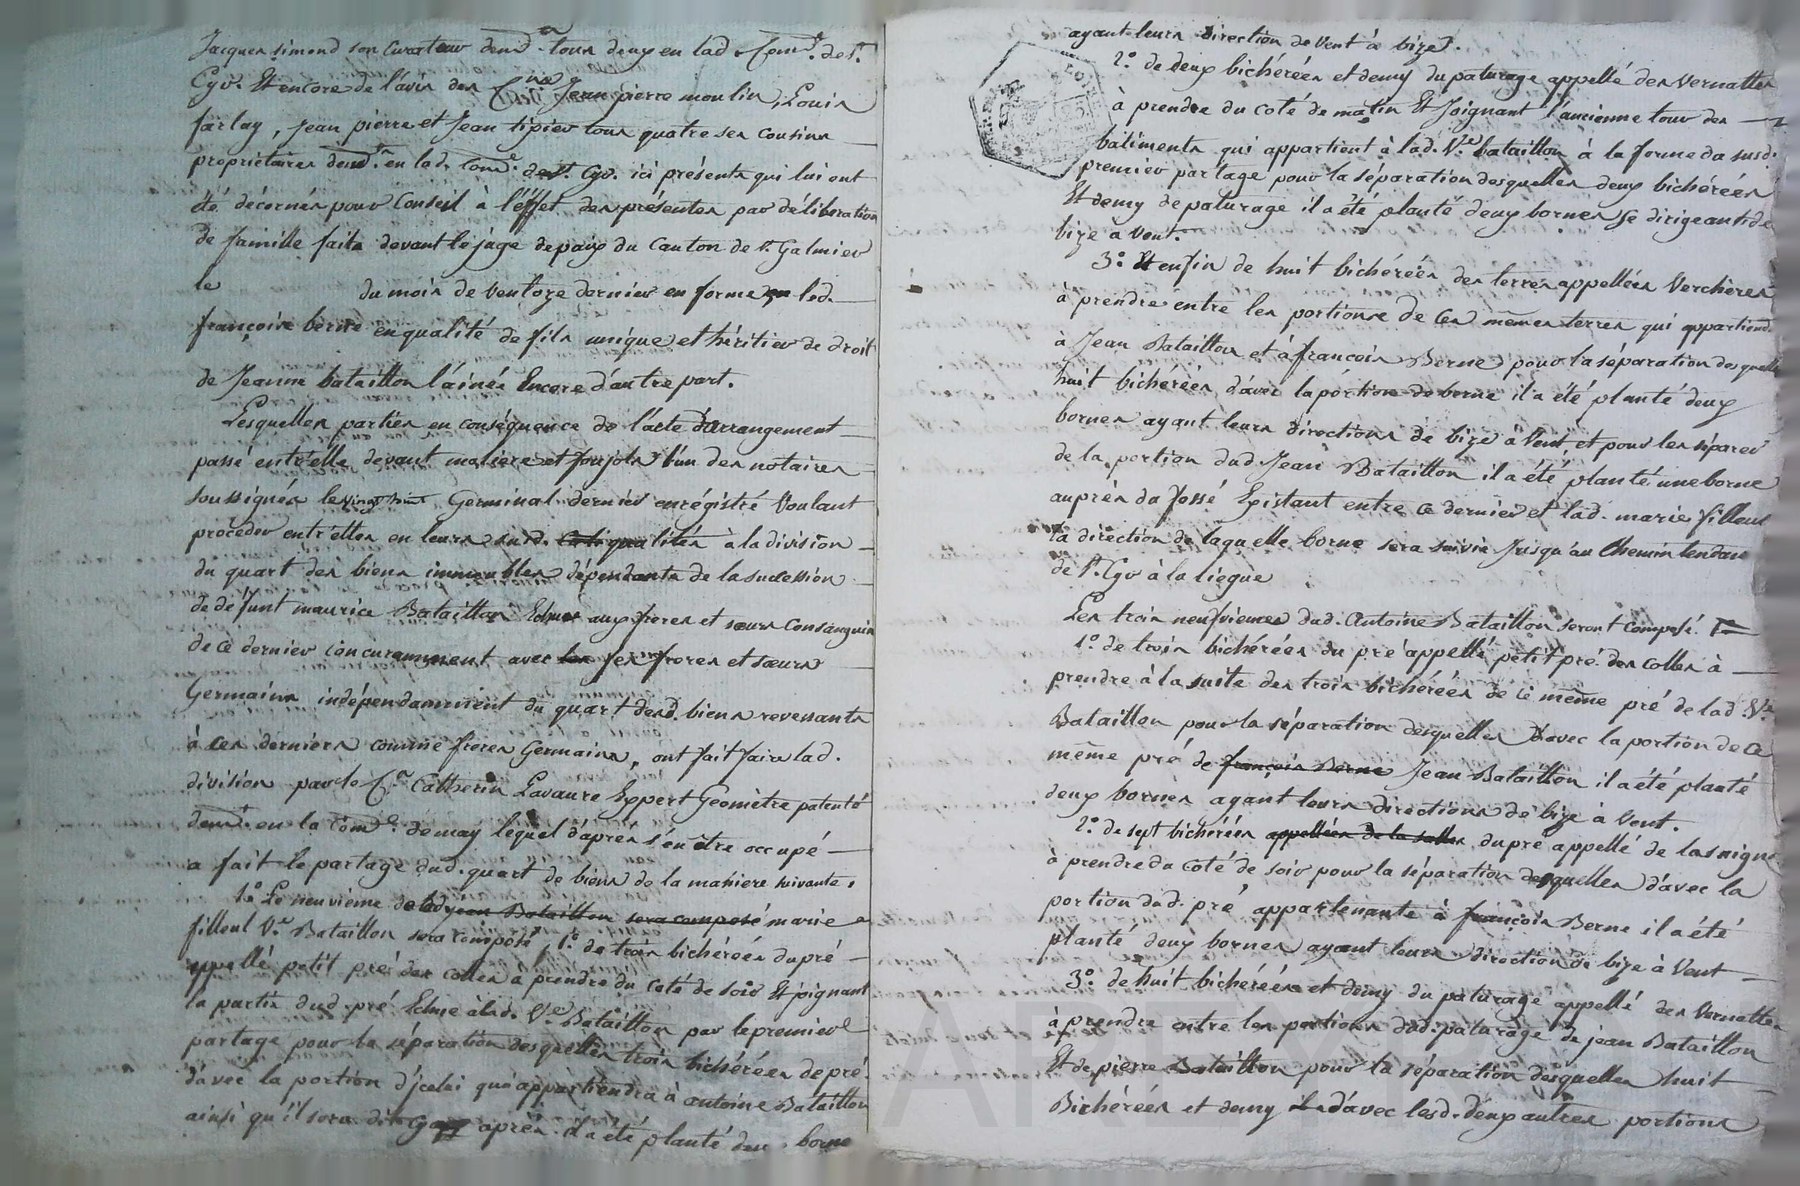 Jacques simond son Curateur demt. tous deux en lad. Come. de St.
Cyr. Et encore de l'avis des Cnes Jean pierre moulin, Louis
farlay, Jean pierre et Jean tipier tous quatre ses cousins
propriétaires demts. en lad. Come. de St. Cyr. ici présents qui lui ont
été décernés pour Conseil à l'éffet des présentes par délibération
de famille faite devant le juge de paix du Canton de St. Galmier
le du mois de Ventoze dernier en forme lad.
françoise berne en qualité de fils unique et héritier de droit
de Jeanne bataillon l'ainée Encore d'autre part.
Lesquelles parties en conséquence de l'acte d'arrangement
passé entr'elle devant maliere et l'un des notaires
soussignés le vingt huit Germinal dernier enrégistré Voulant
procéder entr'elles en leurs susd. qualités à la division
du quart des biens immeubles dépendants de la succession
de défunt maurice Bataillon Echus aux freres et sœurs Consanguins
de ce dernier concuramment avec les ses freres et sœurs
Germains indépendamment du quart desd. biens revenants
à ces derniers comme freres Germains, ont fait faire lad.
division par le Cn. Catherin Lavaure Expert Géometre patenté
demt. en la Come. de may lequel d'après s'en être occupé
a fait le partage dud. quart de biens de la maniere suivante,
1.° Le neuvieme de lad jean Bataillon sera composé marie
filleul Ve. Bataillon sera composé, 1.° de trois bichérées du pré
appellé petit pré des colles à prendre du coté de soir Et joignant
la partie dud. pré Echue à lad. Ve. Bataillon par le premier
partage pour la séparation desquelles trois bichérées de pré
d'avec la portion d'jcelui qui appartiendra à antoine Bataillon
ainsi qu'il sera dit après il a été planté deux bornes
ayant leurs direction de vent à bize.
2.° de deux bichérées et demy du paturage appellé des vernattes
à prendre du coté de matin Et Joignant l'ancienne tour des
batiments qui appartient à lad. Ve. bataillon à la forme du susd.
premier partage pour la séparation desquelles deux bichérées
Et demy de paturage il a été planté deux bornes se dirigeant de
bize à vent.
3.° Et enfin de huit bichérées des terres appellées Verchères
à prendre entre les portions de ces mêmes terres qui appartiend.
à Jean Bataillon et à francois Berne pour la séparation desquelles
huit bichérées d'avec la portion de berne il a été planté deux
bornes ayant leurs directions de bize à Vent, et pour les séparer
de la portion dud. Jean Bataillon il a été planté une borne
auprès du fossé Existant entre ce dernier et lad. marie filleul
la direction de laquelle borne sera suivie Jusqu'au Chemin tendant
de St. Cyr à la liegue
Les trois neufviemes dud. Antoine Bataillon seront composé.
1.° de trois bichérées du pré appellé petit pré des colles à
prendre à la suite des trois bichérées de ce même pré de lad. Ve.
Bataillon pour la séparation desquelles d'avec la portion de ce
même pré de françois Berne Jean Bataillon il a été planté
deux bornes ayant leurs directions de bize à Vent.
2.° de sept bichérées appellées de la salles du pré appellé de la saigne
à prendre du coté de soir pour la séparation desquelles d'avec la
portion dud. pré appartenante à françois Berne il a été
planté deux bornes ayant leurs direction de bize à Vent
3.° de huit bichérées et demy du paturage appellé des Vernattes
à prendre entre les portions dud. paturage de jean Bataillon
Et de pierre Bataillon pour la séparation desquelles huit
Bichérées et demy d'avec lesd. deux autres portions